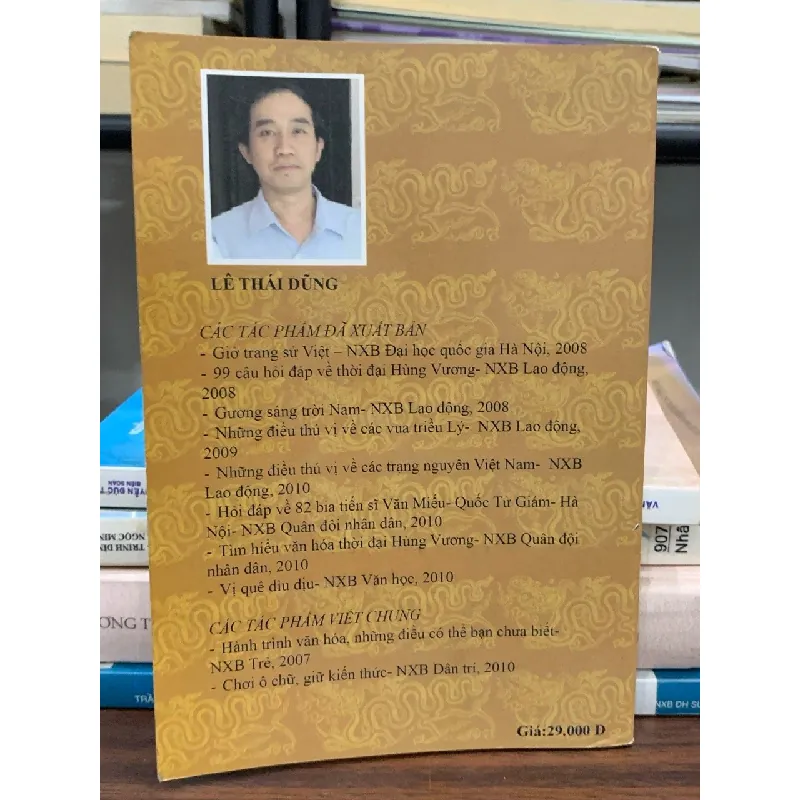 LÊ THÁI DŨNG
CÁC TÁC PHẨM ĐÃ XUẤT BẢN
- Giở trang sử Việt – NXB Đại học quốc gia Hà Nội, 2008
- 99 câu hỏi đáp về thời đại Hùng Vương- NXB Lao động,
2008
- Gương sáng trời Nam- NXB Lao động, 2008
- Những điều thú vị về các vua triều Lý- NXB Lao động,
2009
- Những điều thú vị về các trạng nguyên Việt Nam- NXB
Lao động, 2010
- Hỏi đáp về 82 bia tiến sĩ Văn Miếu- Quốc Tử Giám- Hà
Nội- NXB Quân đội nhân dân, 2010
- Tìm hiểu văn hóa thời đại Hùng Vương- NXB Quân đội
nhân dân, 2010
- Vị quê dìu dịu- NXB Văn học, 2010
CÁC TÁC PHẨM VIẾT CHUNG
- Hành trình văn hóa, những điều có thể bạn chưa biết-
NXB Trẻ, 2007
- Chơi ô chữ, giữ kiến thức- NXB Dân trí, 2010
Giá:29.000 Đ
YỄN ĐỨC T
BIÊN SOẠN
TRỊNH ĐÌN
NGỌC MIN
ƠNG T
TRẦ
VĂN
907
Nhâ
NXB ĐH SƯ